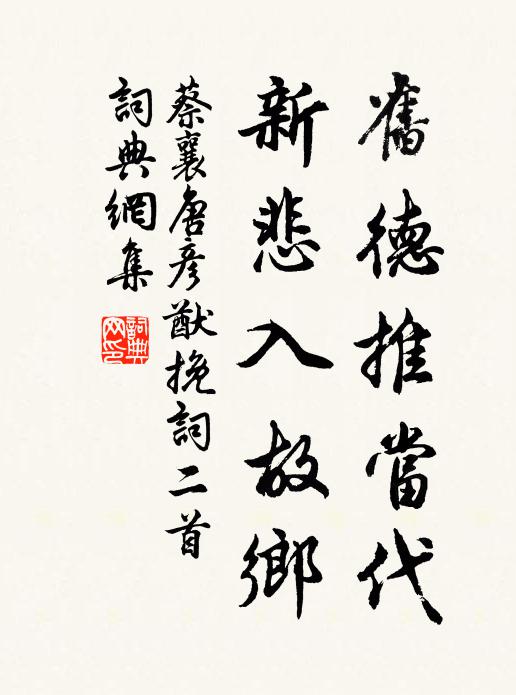 舊德推當代
新悲入故鄉
蔡襄唐彥猷挽詞二首
詞典網集
詞典
网印